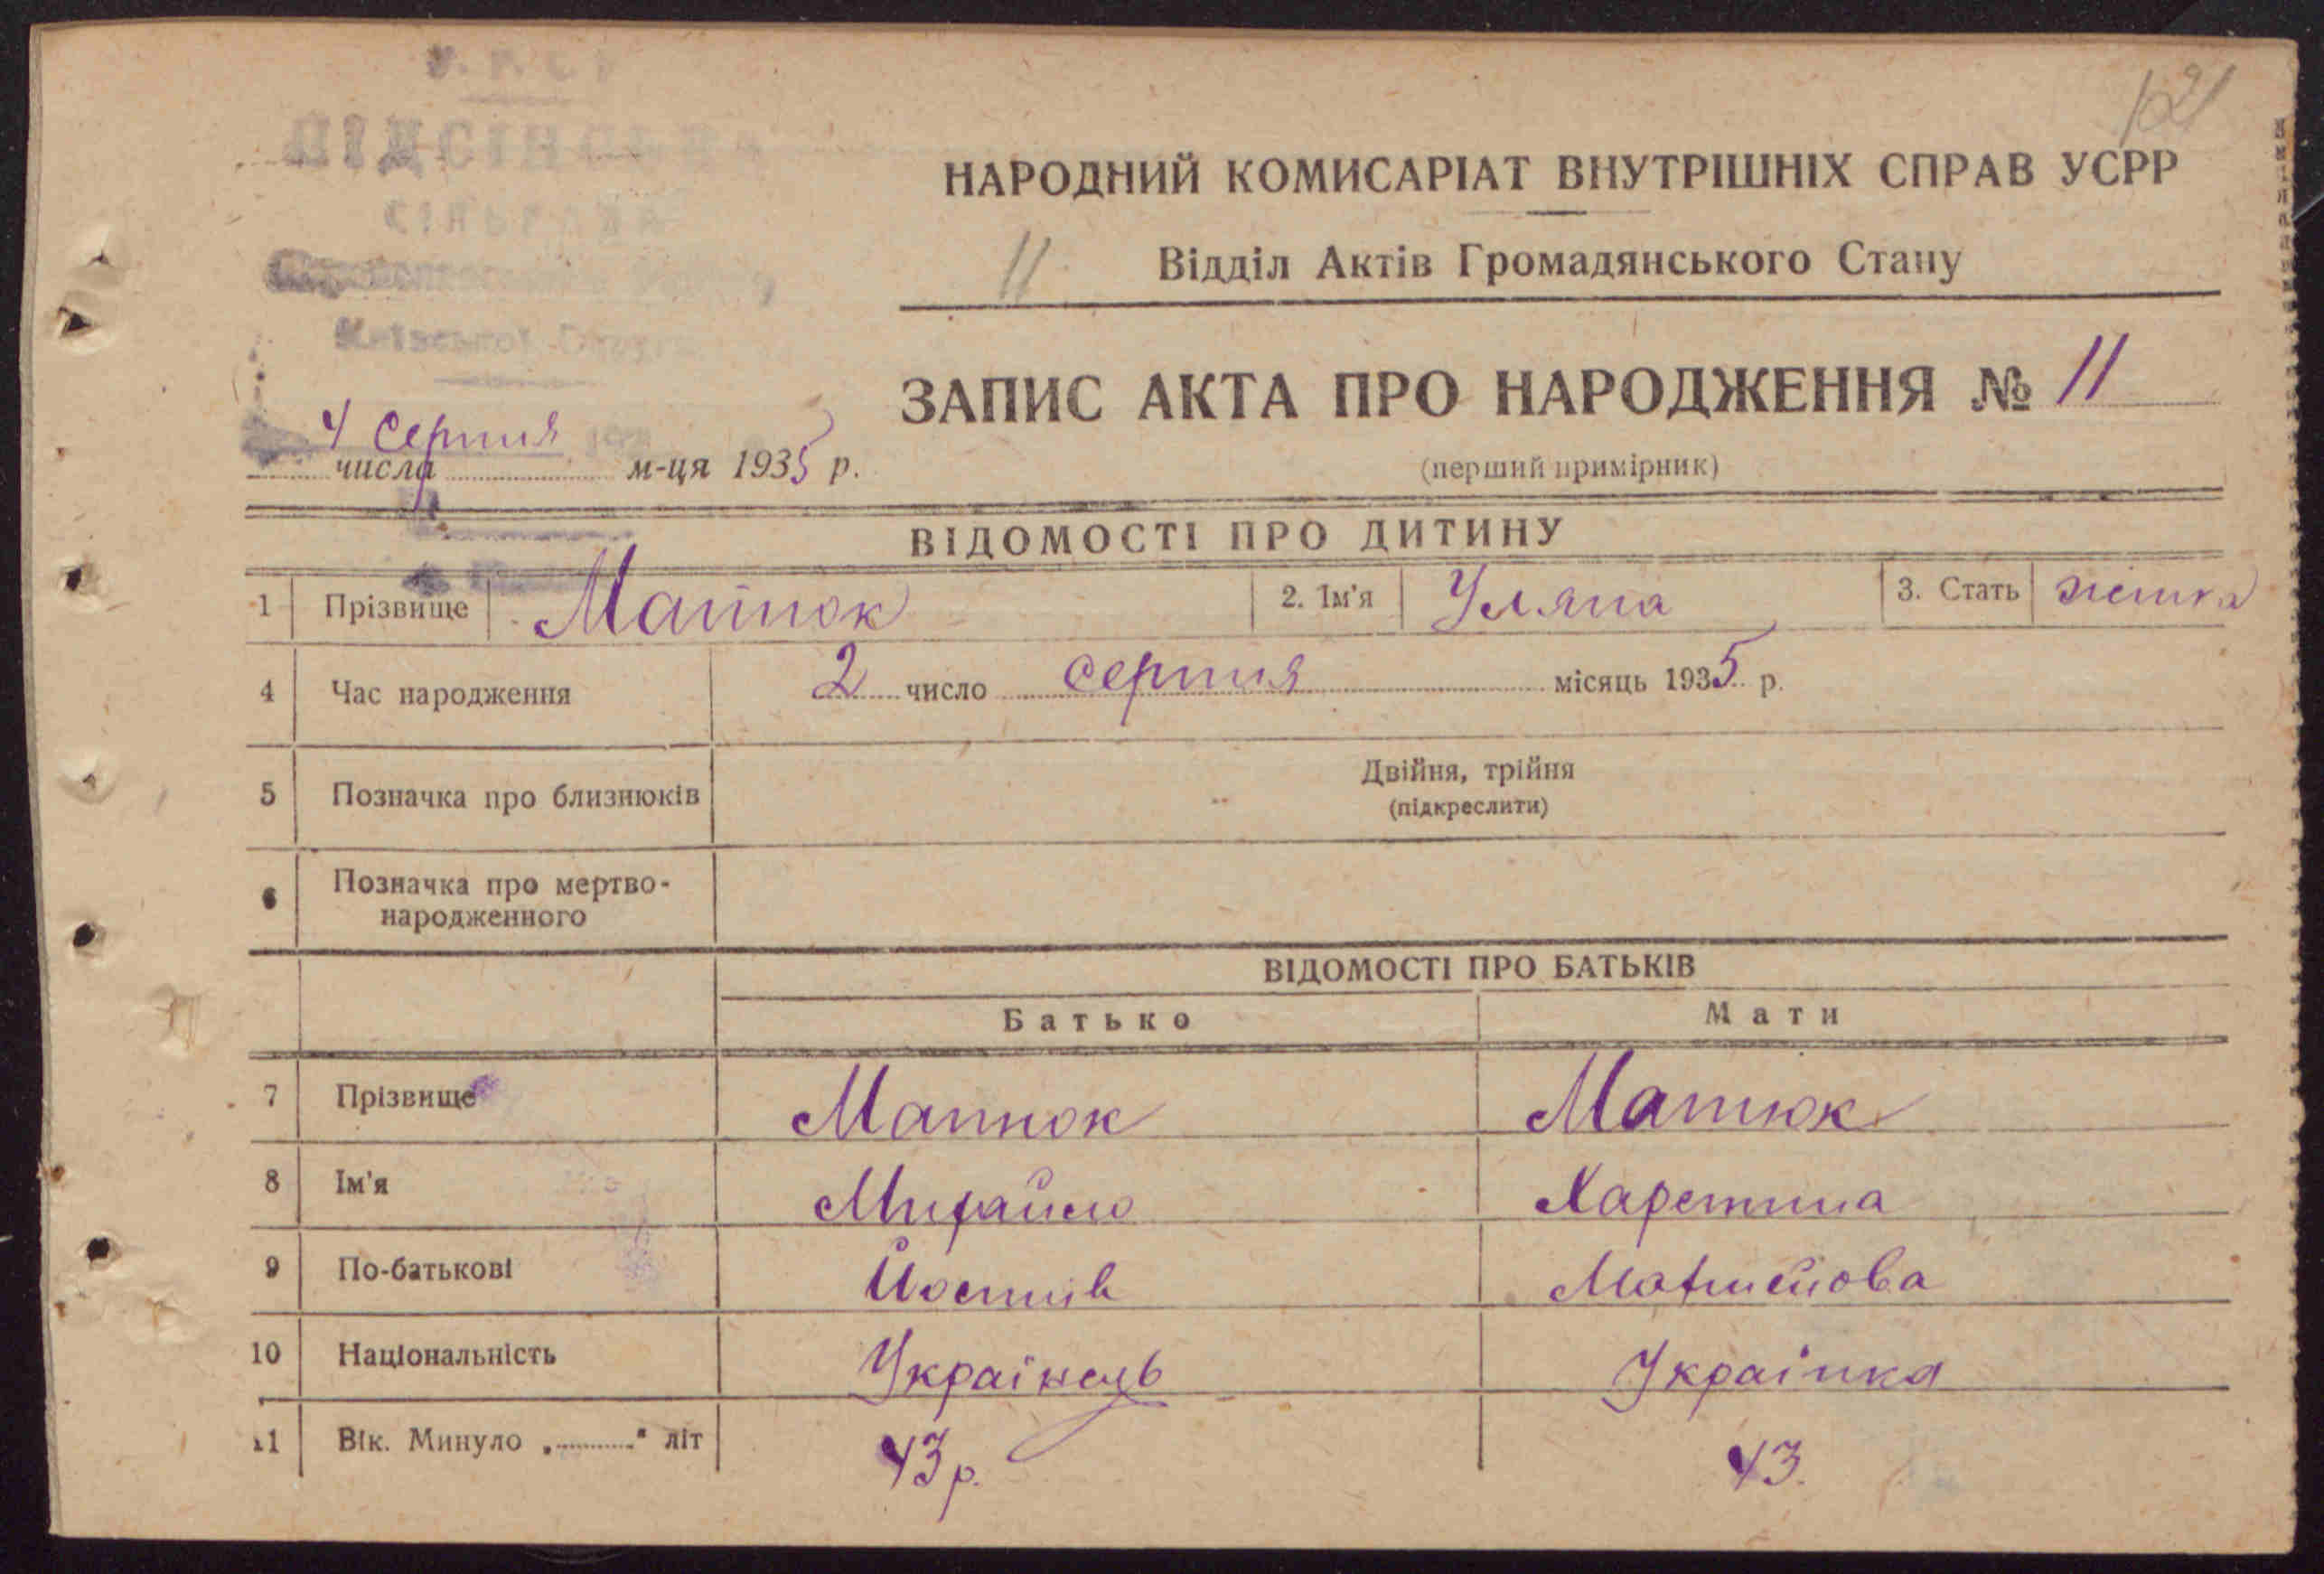 У. Р. С. Р
ПІДСІНСЬКА
СІЛЬРАДА
Київської Округи
121
НАРОДНИЙ КОМИСАРІАТ ВНУТРІШНІХ СПРАВ УСРР
11 Відділ Актів Громадянського Стану
ЗАПИС АКТА ПРО НАРОДЖЕННЯ № 11
(перший примірник)
4 серпня
числа м-ця 1935 р.
ВІДОМОСТІ ПРО ДИТИНУ
1 Прізвище Матюк 2. Ім'я Уляна 3. Стать жінка
4 Час народження 2 число серпня місяць 1935 р.
5 Позначка про близнюків Двійня, трійня
(підкреслити)
6 Позначка про мертво-
народженного
ВІДОМОСТІ ПРО БАТЬКІВ
Батько Мати
7 Прізвище Матюк Матюк
8 Ім'я Михайло Харетина
9 По-батькові
10 Національність Українець Українка
11 Вік. Минуло „ " літ 43 р. 43.